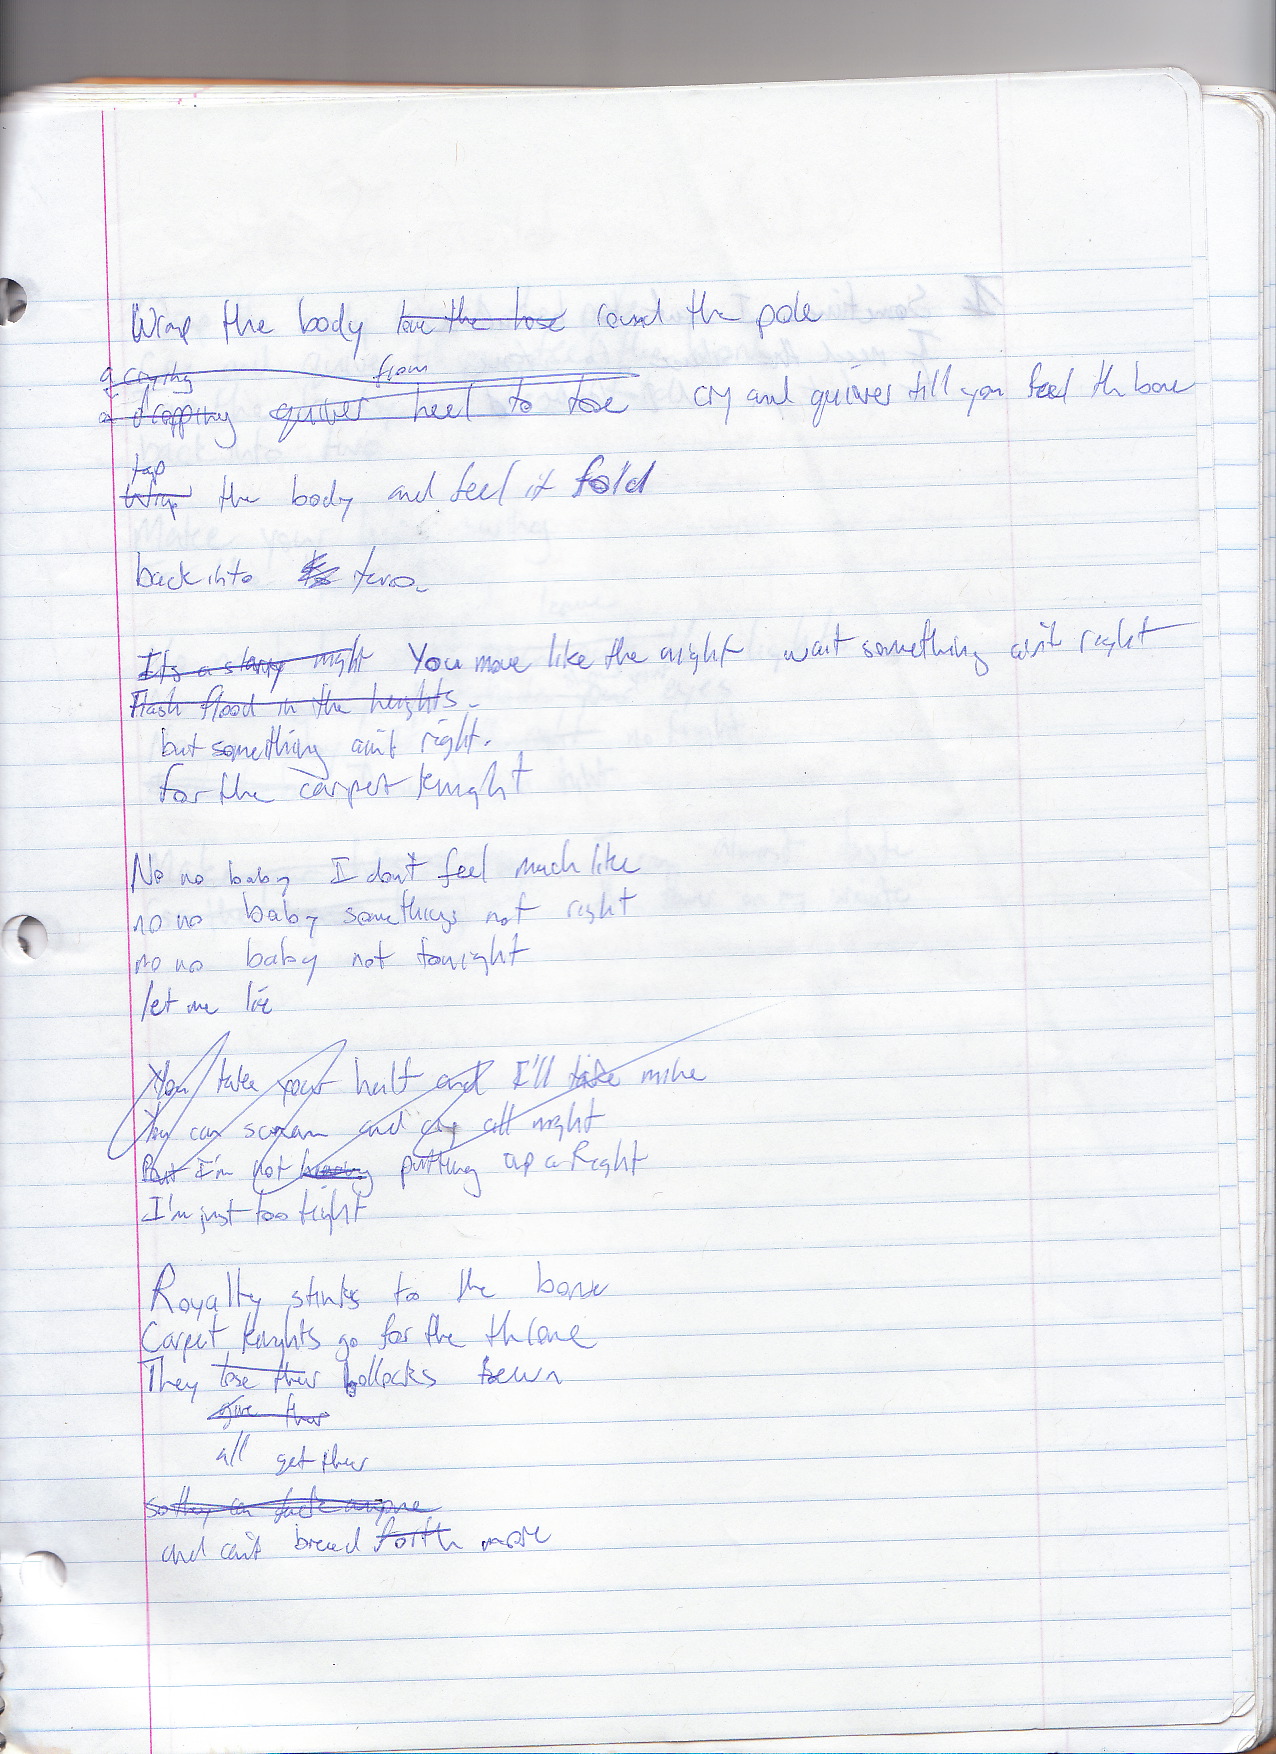 Wrap the body round the pole
a crying from
dropping quiver heel to toe cry and quiver till you feel th bone
tap
Wrap the body and feel it fold
back into two.
Its a starry night You move like the night wait something ain't right
Flash flood in the heights.
but something ain't right.
for the carpet knight
No no baby I don't feel much like
no no baby somethings not right
no no baby not tonight
let me lie
You take your half and I'll take mine
You can scream and cry all night
But I'm not putting up a Fight
I'm just too tight
Royalty stinks to the bone
Carpet knights go for the throne
They lose their bollocks hewn
give their
all get their
so they can fuck anyone
and can't breed forth more